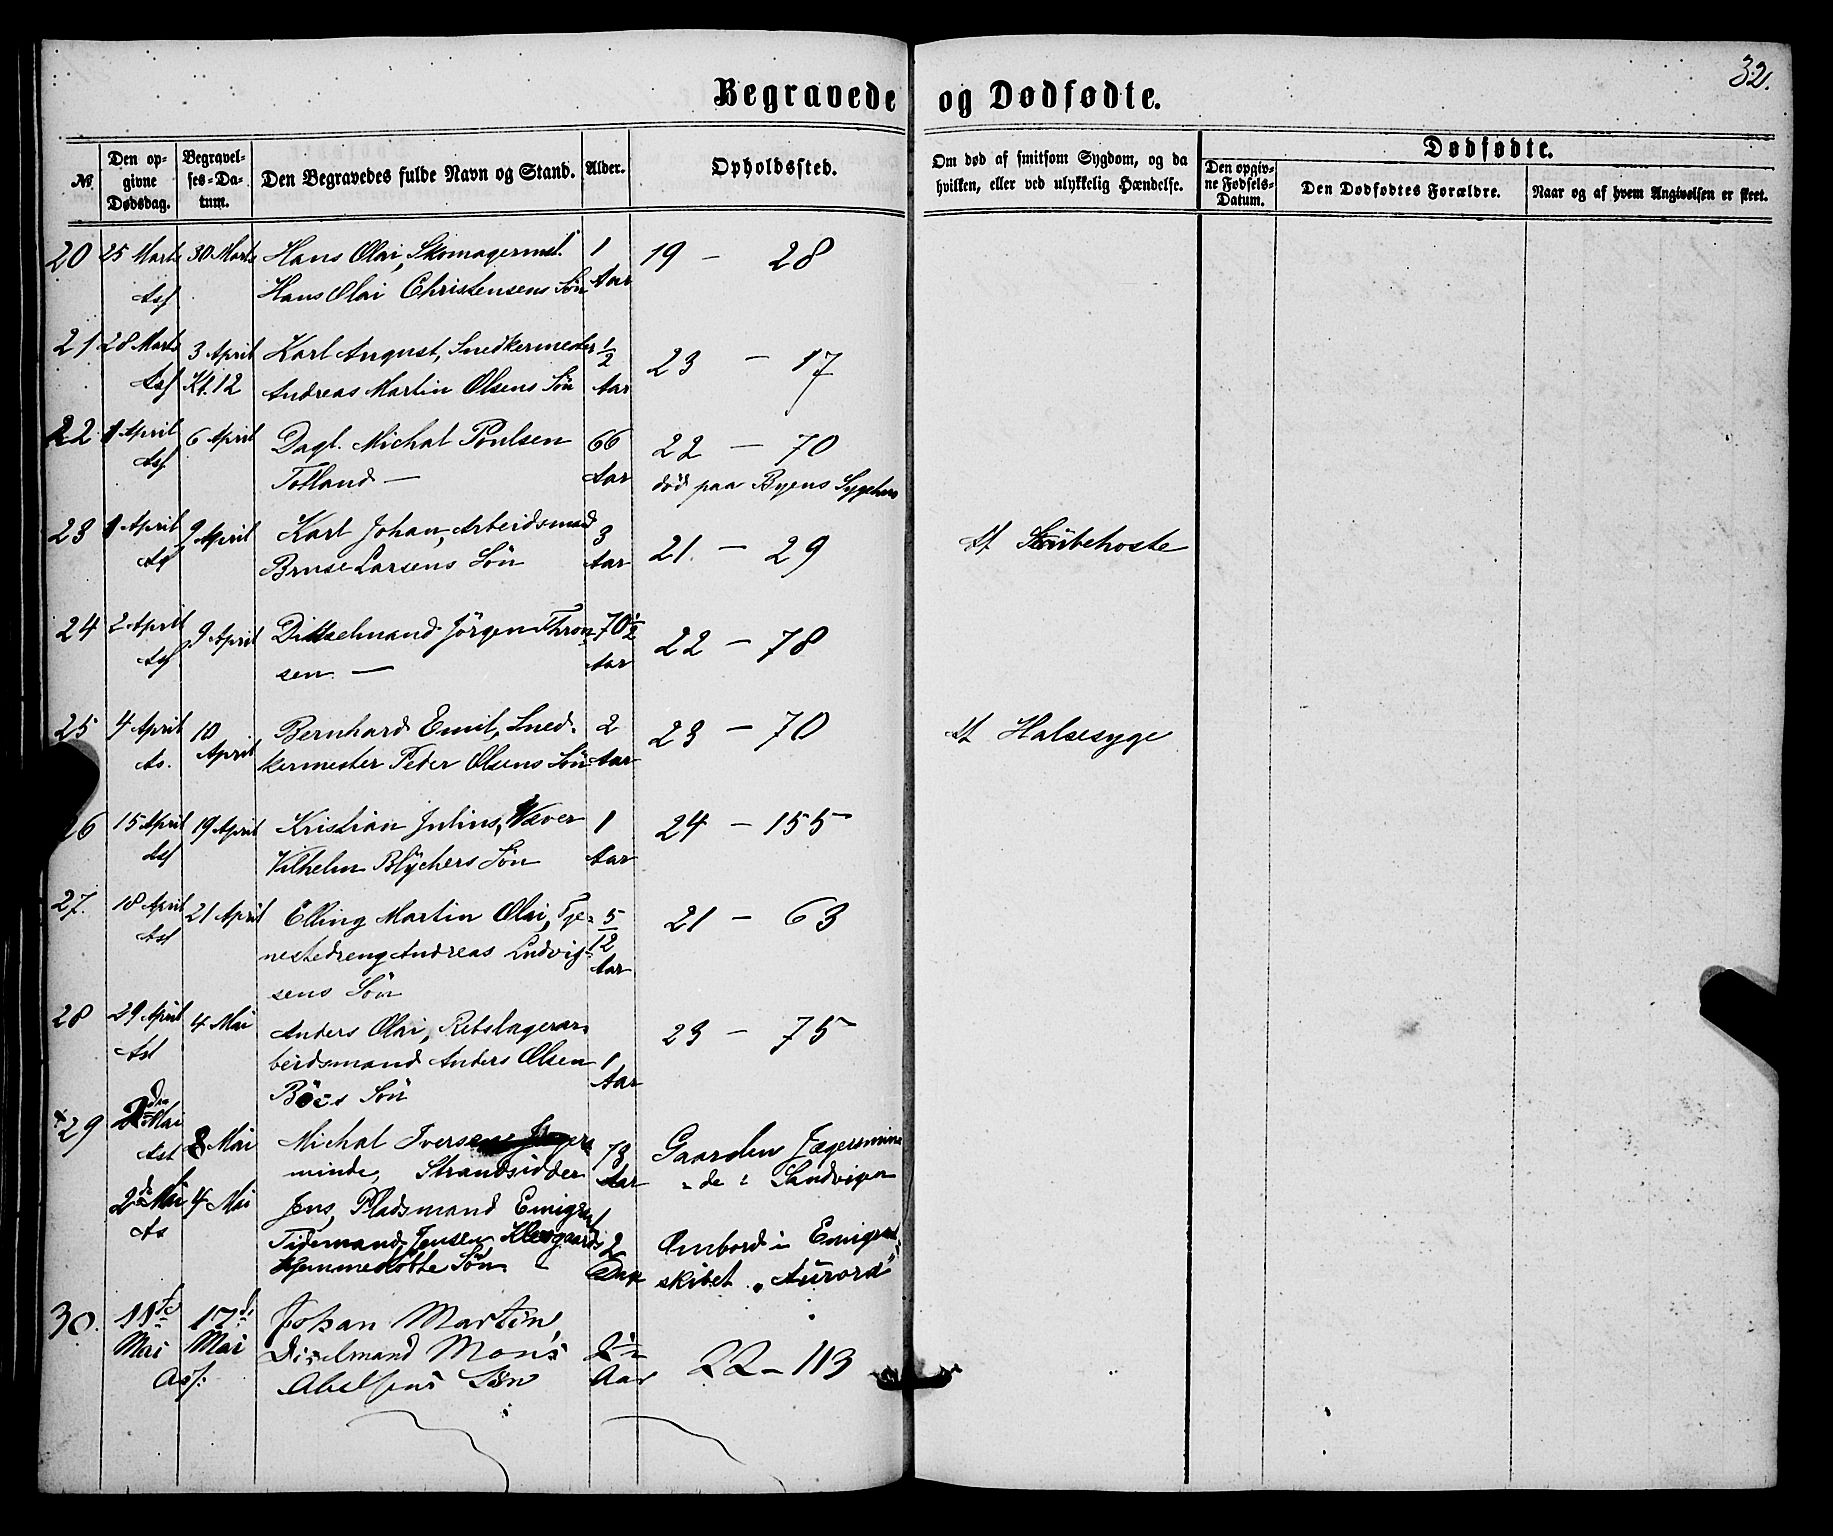 32.
Begravede og Dødfødte.
№
Den opgivne Dødsdag.
Begravelses-Datum.
Den Begravedes fulde Navn og Stand.
Alder.
Opholdssted.
Om død af smitsom Sygdom, og da hvilken, eller ved ulykkelig Hændelse.
Dødfødte.
Den opgivne Fødsels-Datum.
Den Dødfødtes Forældre.
Naar og af hvem Angivelsen er skeet.
20 25 Marts 30 Marts Hans Olai, Skomagermst. 1 19 - 28
Asf Hans Olai Christensens Søn Aar
21 28 Marts 3 April Karl August, Snedkermester 1/2 23 - 17
Asf Kl. 12 Andreas Martin Olsens Søn Aar
22 1 April 6 April Dagl. Michal Poulsen 66 22 - 70
Asf Totland - Aar død paa Byens Sygehus
23 1 April 9 April Karl Johan, Arbeidsmand 3 21. - 29 Af Strubehoste
Bruse Larsens Søn Aar
24 2 April 9 April Jörgen Thron- 70 1/2 22 - 78
Asf sen. - Aar
25 4 April 10 April Bernhard Emil, Sned- 2 23 - 70 Af Halsesyge
As. kermester Peder Olsens Søn Aar
26 15 April 19 April Kristian Julius, Væver 1 24 - 155
Asf Vilhelm Blÿchers Søn Aar
27. 18 April 21 April Elling Martin Olai, Tje- 5/12 21 - 63
Ast nestedreng Andreas Ludvig- Aar
sens Søn
28 29 April 4 Mai Anders Olai, Rebslagerar- 23 - 75
Ast beidsmand Anders Olsen 1
Böes Søn Aar
+29 2den Mai 8 Mai Michal Iversen 73 Gaarden Jægersmin
Ast minde, Strandsidder Aar -de i Sandvigen
2d Mai 4 Mai Jens, Pladsmand Emigrant
As Tidemand Jensen 2 Ombord i Emigrant-
Søn Dage skibet "Aurora"
30. 11te 17de Johan Martin,
Mai Mai Mons 2 1/2 22 - 113
Asf: Abelsens Søn Aar